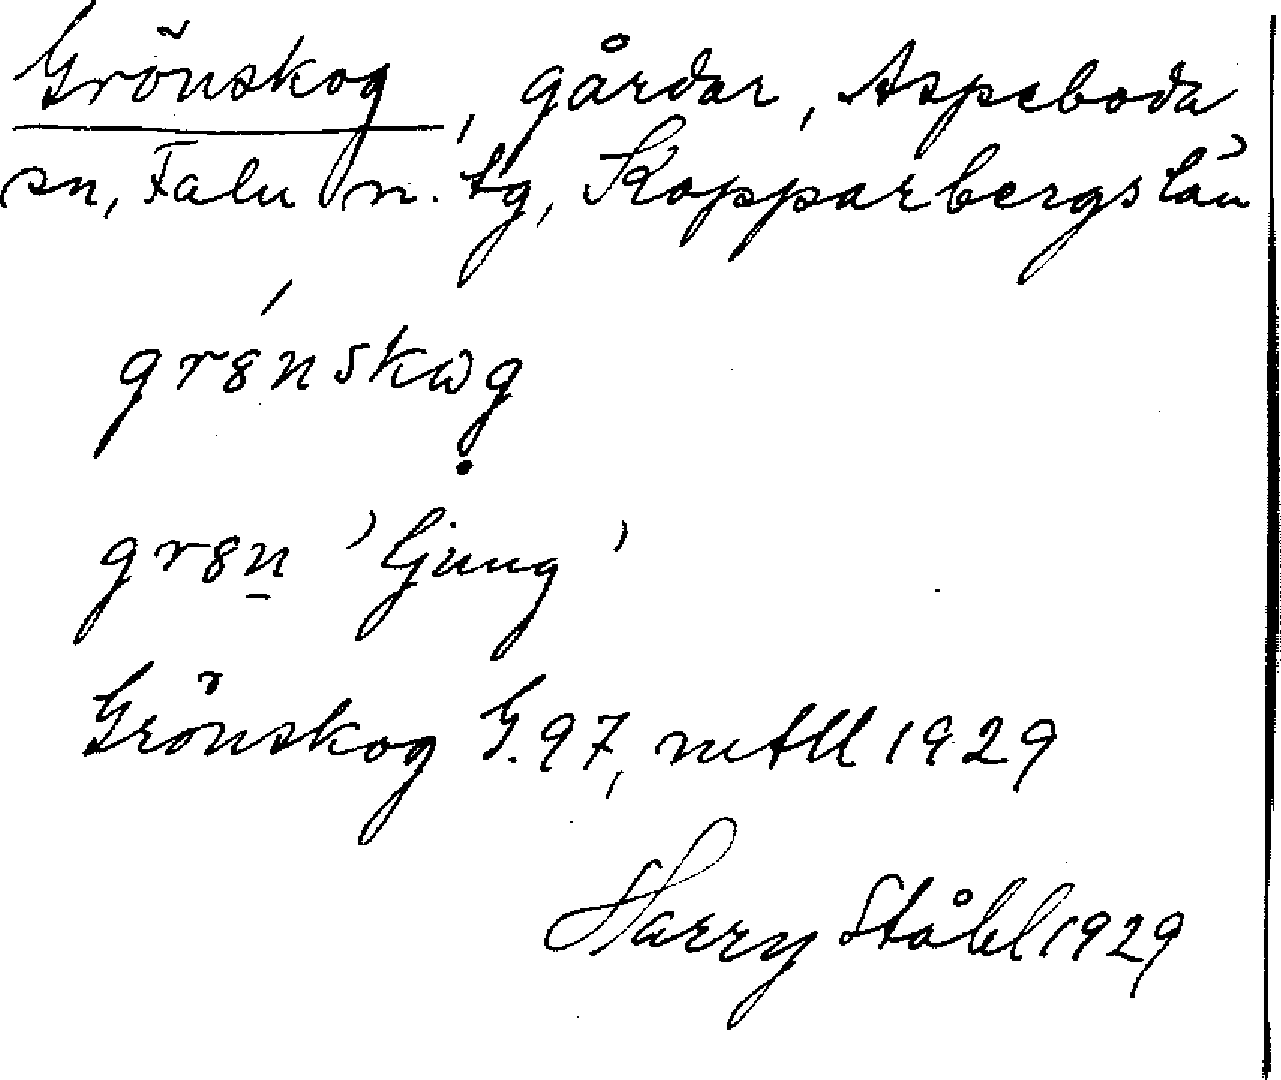 Grönskog, gårdar, Aspeboda
sn, Falu n. tg, Kopparbergs län
gr8́nskωg
gr8n̲ 'ljung'
Grönskog G. 97, mtll 1929
Harry Ståhl 1929